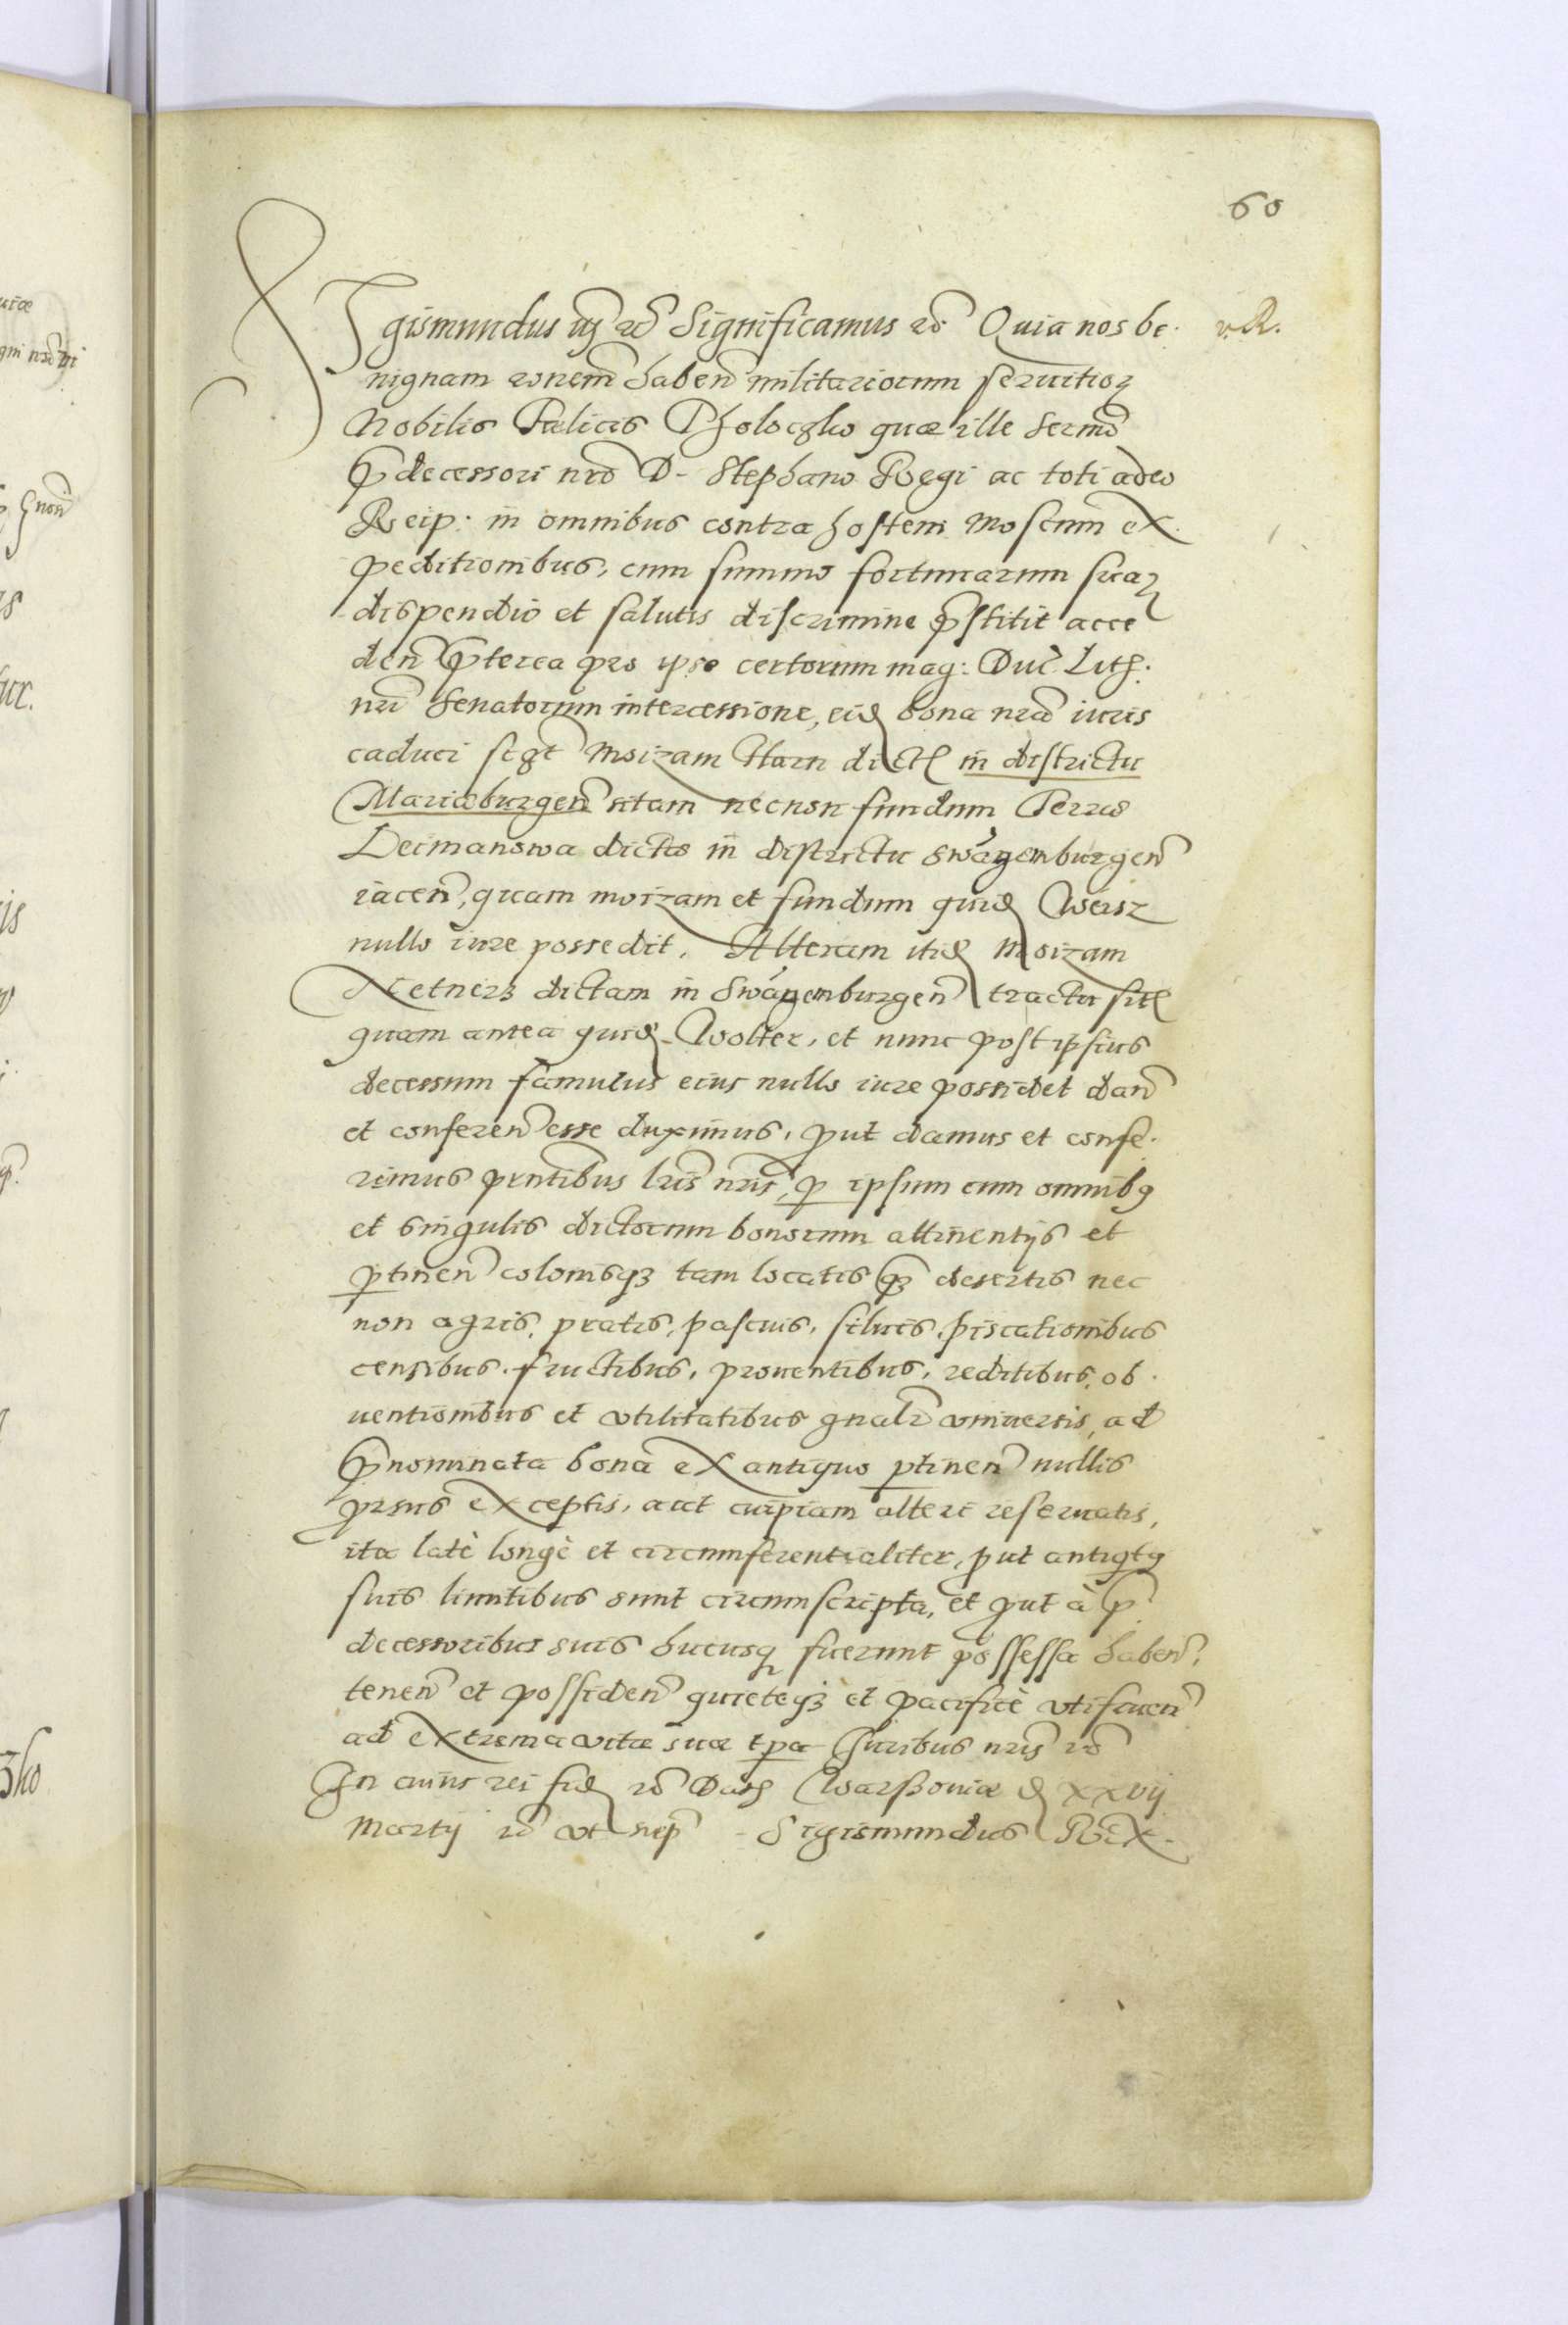 60
Sigismundus iij rc̃ Significamus rc̃ Quia nos be. v. R.
nignam rõnem haben̄ militarium seruitioꝝ
Nobilis Fœlicis Pholoczko quæ ille Sermō
p̄decessori nrō D. Stephano Regi ac toti adeo
Reip. in omnibus contra hostem Moscum ex
peditionibus, cum summo fortunarum suaꝝ
dispendio et salutis discrimine p̄stitit acce
den̄ p̄terea pro ipso certorum mag: Duc̄ Lith.
nrī Senatorum intercessione, eidꝫ bona nrā iuris
caduci scꝫt Moizam Harn dictꝫ in districtu
Mariæburgen̄ sitam necnon fundum Terræ
Deimanowa dictæ in districtu Swanenburgen̄
iacen̄, quam moizam et fundum quidꝫ Weisz
nullo iure possedit. Alteram itidꝫ Moizam
Netnerz dictam in Swanenburgen̄ tractu sitꝫ
quam antea quidꝫ Wolter, et nunc post ipsius
decessum famulus eius nullo iure possidet dan̄
et conferen̄ esse duximus, ꝓut damus et confe.
rimus pn̄tibus lrīs nrīs, ꝑ ipsum cum omnibꝰ
et singulis dictorum bonorum attinentijs et
ꝑtinen̄ colonisqꝫ tam locatis q̄ꝫ desertis nec
non agris, pratis, pascuis, siluis, piscationibus
censibus. fructibus, prouentibus, reditibus, ob.
uentionibus et vtilitatibus gn̄alr̄ vniuersis, ad
p̄nominata bona ex antiquo ꝑtinen̄ nullis
ꝓrsus exceptis, aut cuipiam alteri reseruatis,
ita latè longè et circumferentialiter, ꝓut antiqtꝰ
suis limitibus sunt circumscripta, et ꝓut à p̄
decessoribus suis hucusqꝫ fuerunt possessa haben̄,
tenen̄ et possiden̄ quieteqꝫ et pacificè vtifruen̄
ad extrema vitæ suæ tꝑa Juribus nrīs rc̃
In cuius rei fidꝫ rc̃ Datꝫ Warssouiæ dꝫ xxvij
Martij rc̃ vt sup̄ - Sigismundus Rex.